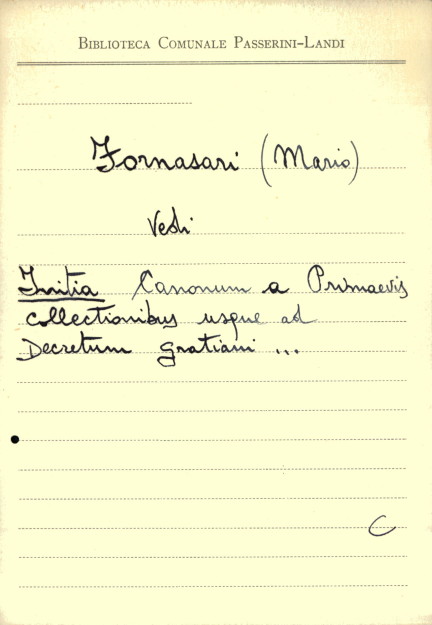 BIBLIOTECA COMUNALE PASSERINI-LANDI
Fornasari (Mario)
Vedi
Initia Canonum a Primaevis
collectionibus usque ad
Decretum gratiani ...
C